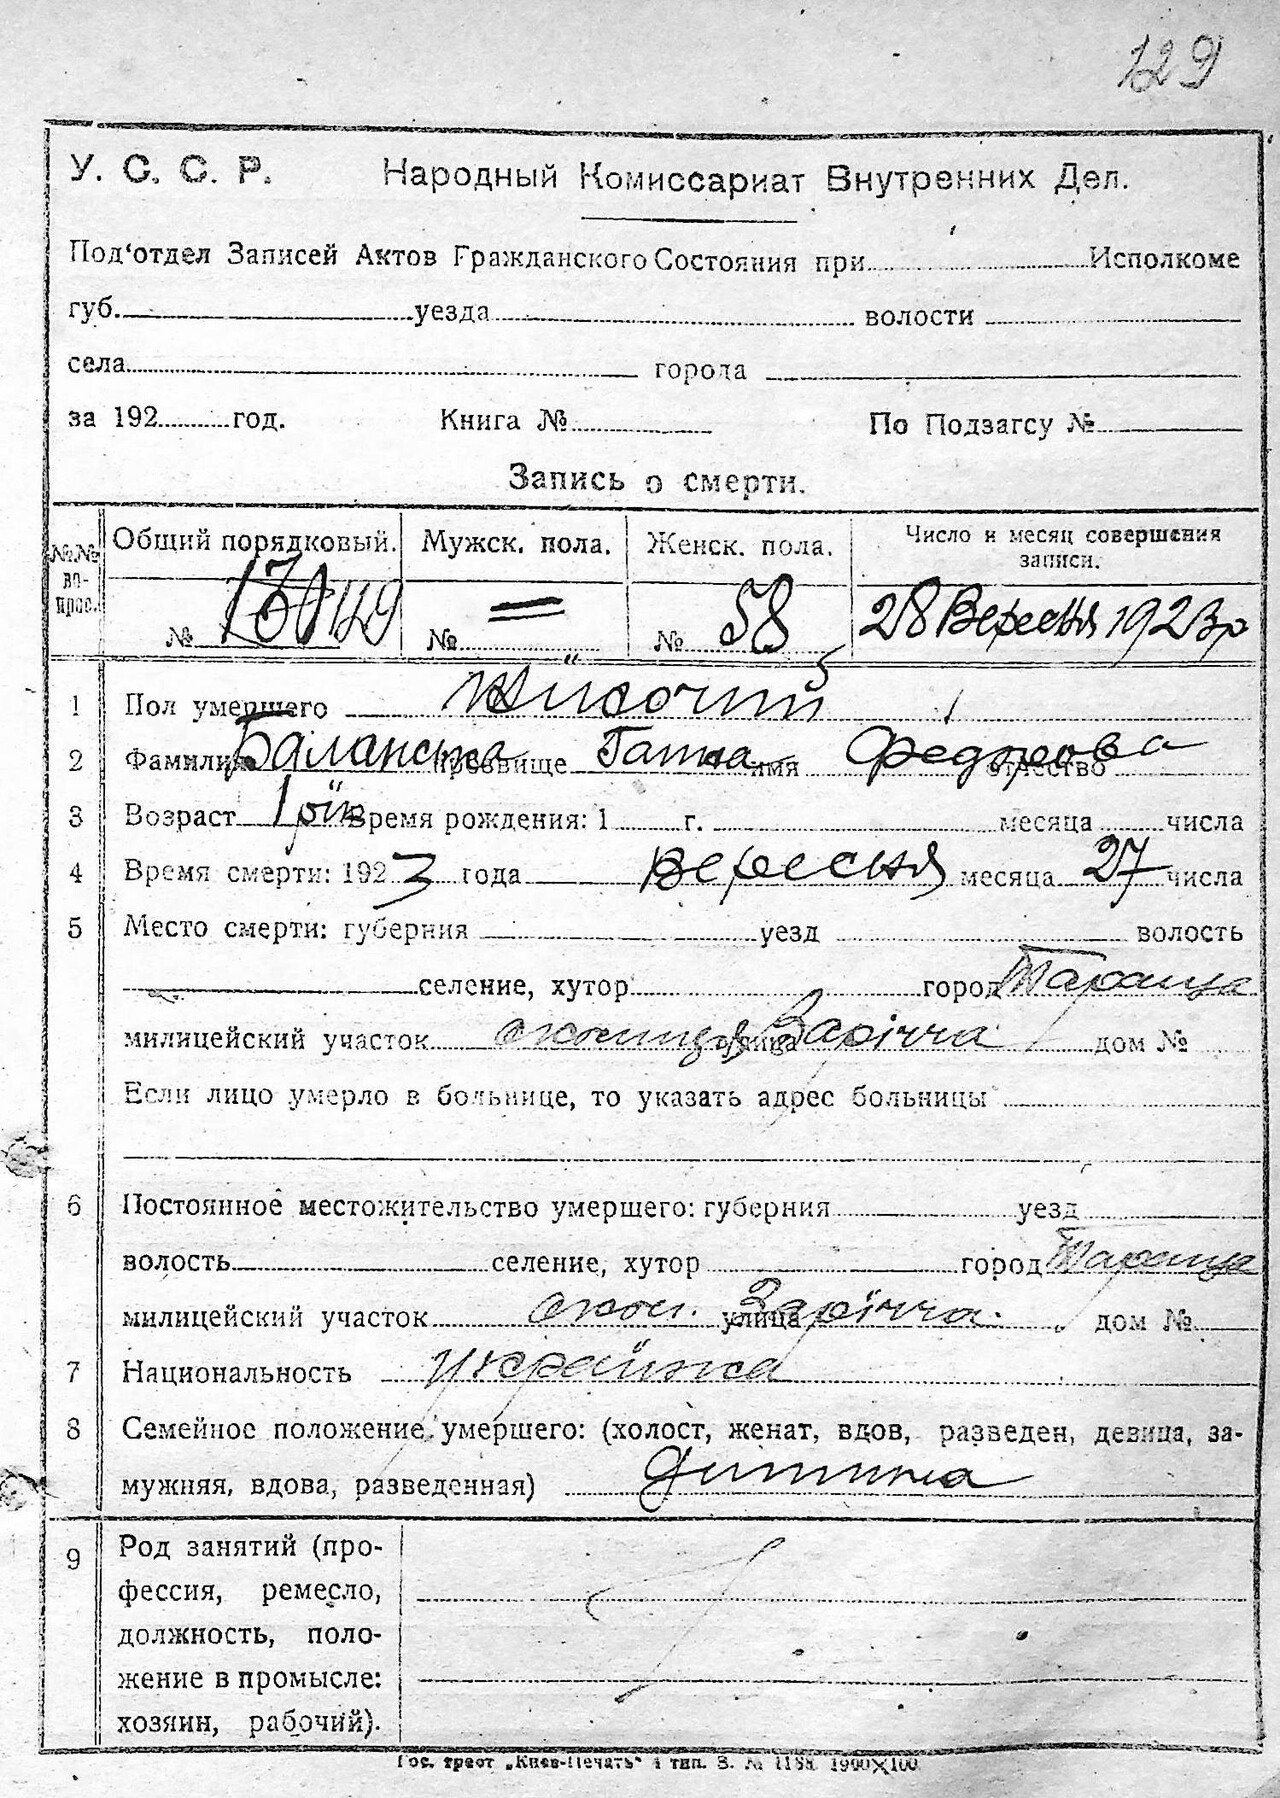 129
У. С. С. Р. Народный Комиссариат Внутренних Дел.
Под'отдел Записей Актов Гражданского Состояния при Исполкоме
губ. уезда волости
села города
за 192 год. Книга № По Подзагсу №
Запись о смерти.
№№ вопрос. Общий порядковый. Мужск. пола. Женск. пола. Число и месяц совершения записи.
№ 130 129 № = № 58 28 Вересня 1923 р
1 Пол умершего Жіночий
2 Фамилия Баланська прозвище Ганна имя Федорова отчество
3 Возраст 1 рік Время рождения: 1 г. месяца числа
4 Время смерти: 1923 года вересня месяца 27 числа
5 Место смерти: губерния уезд волость
селение, хутор город Тараща
милицейский участок околиця улица Заріччя дом №
Если лицо умерло в больнице, то указать адрес больницы
6 Постоянное местожительство умершего: губерния уезд
волость селение, хутор город Тараща
милицейский участок окол. улица Заріччя. дом №
7 Национальность українка
8 Семейное положение умершего: (холост, женат, вдов, разведен, девица, за-
мужняя, вдова, разведенная) дитина
9 Род занятий (про-
фессия, ремесло,
должность, поло-
жение в промысле:
хозяин, рабочий).
Гос. трест „Киев-Печать“ 4 тип. З. № 1188 1900×100